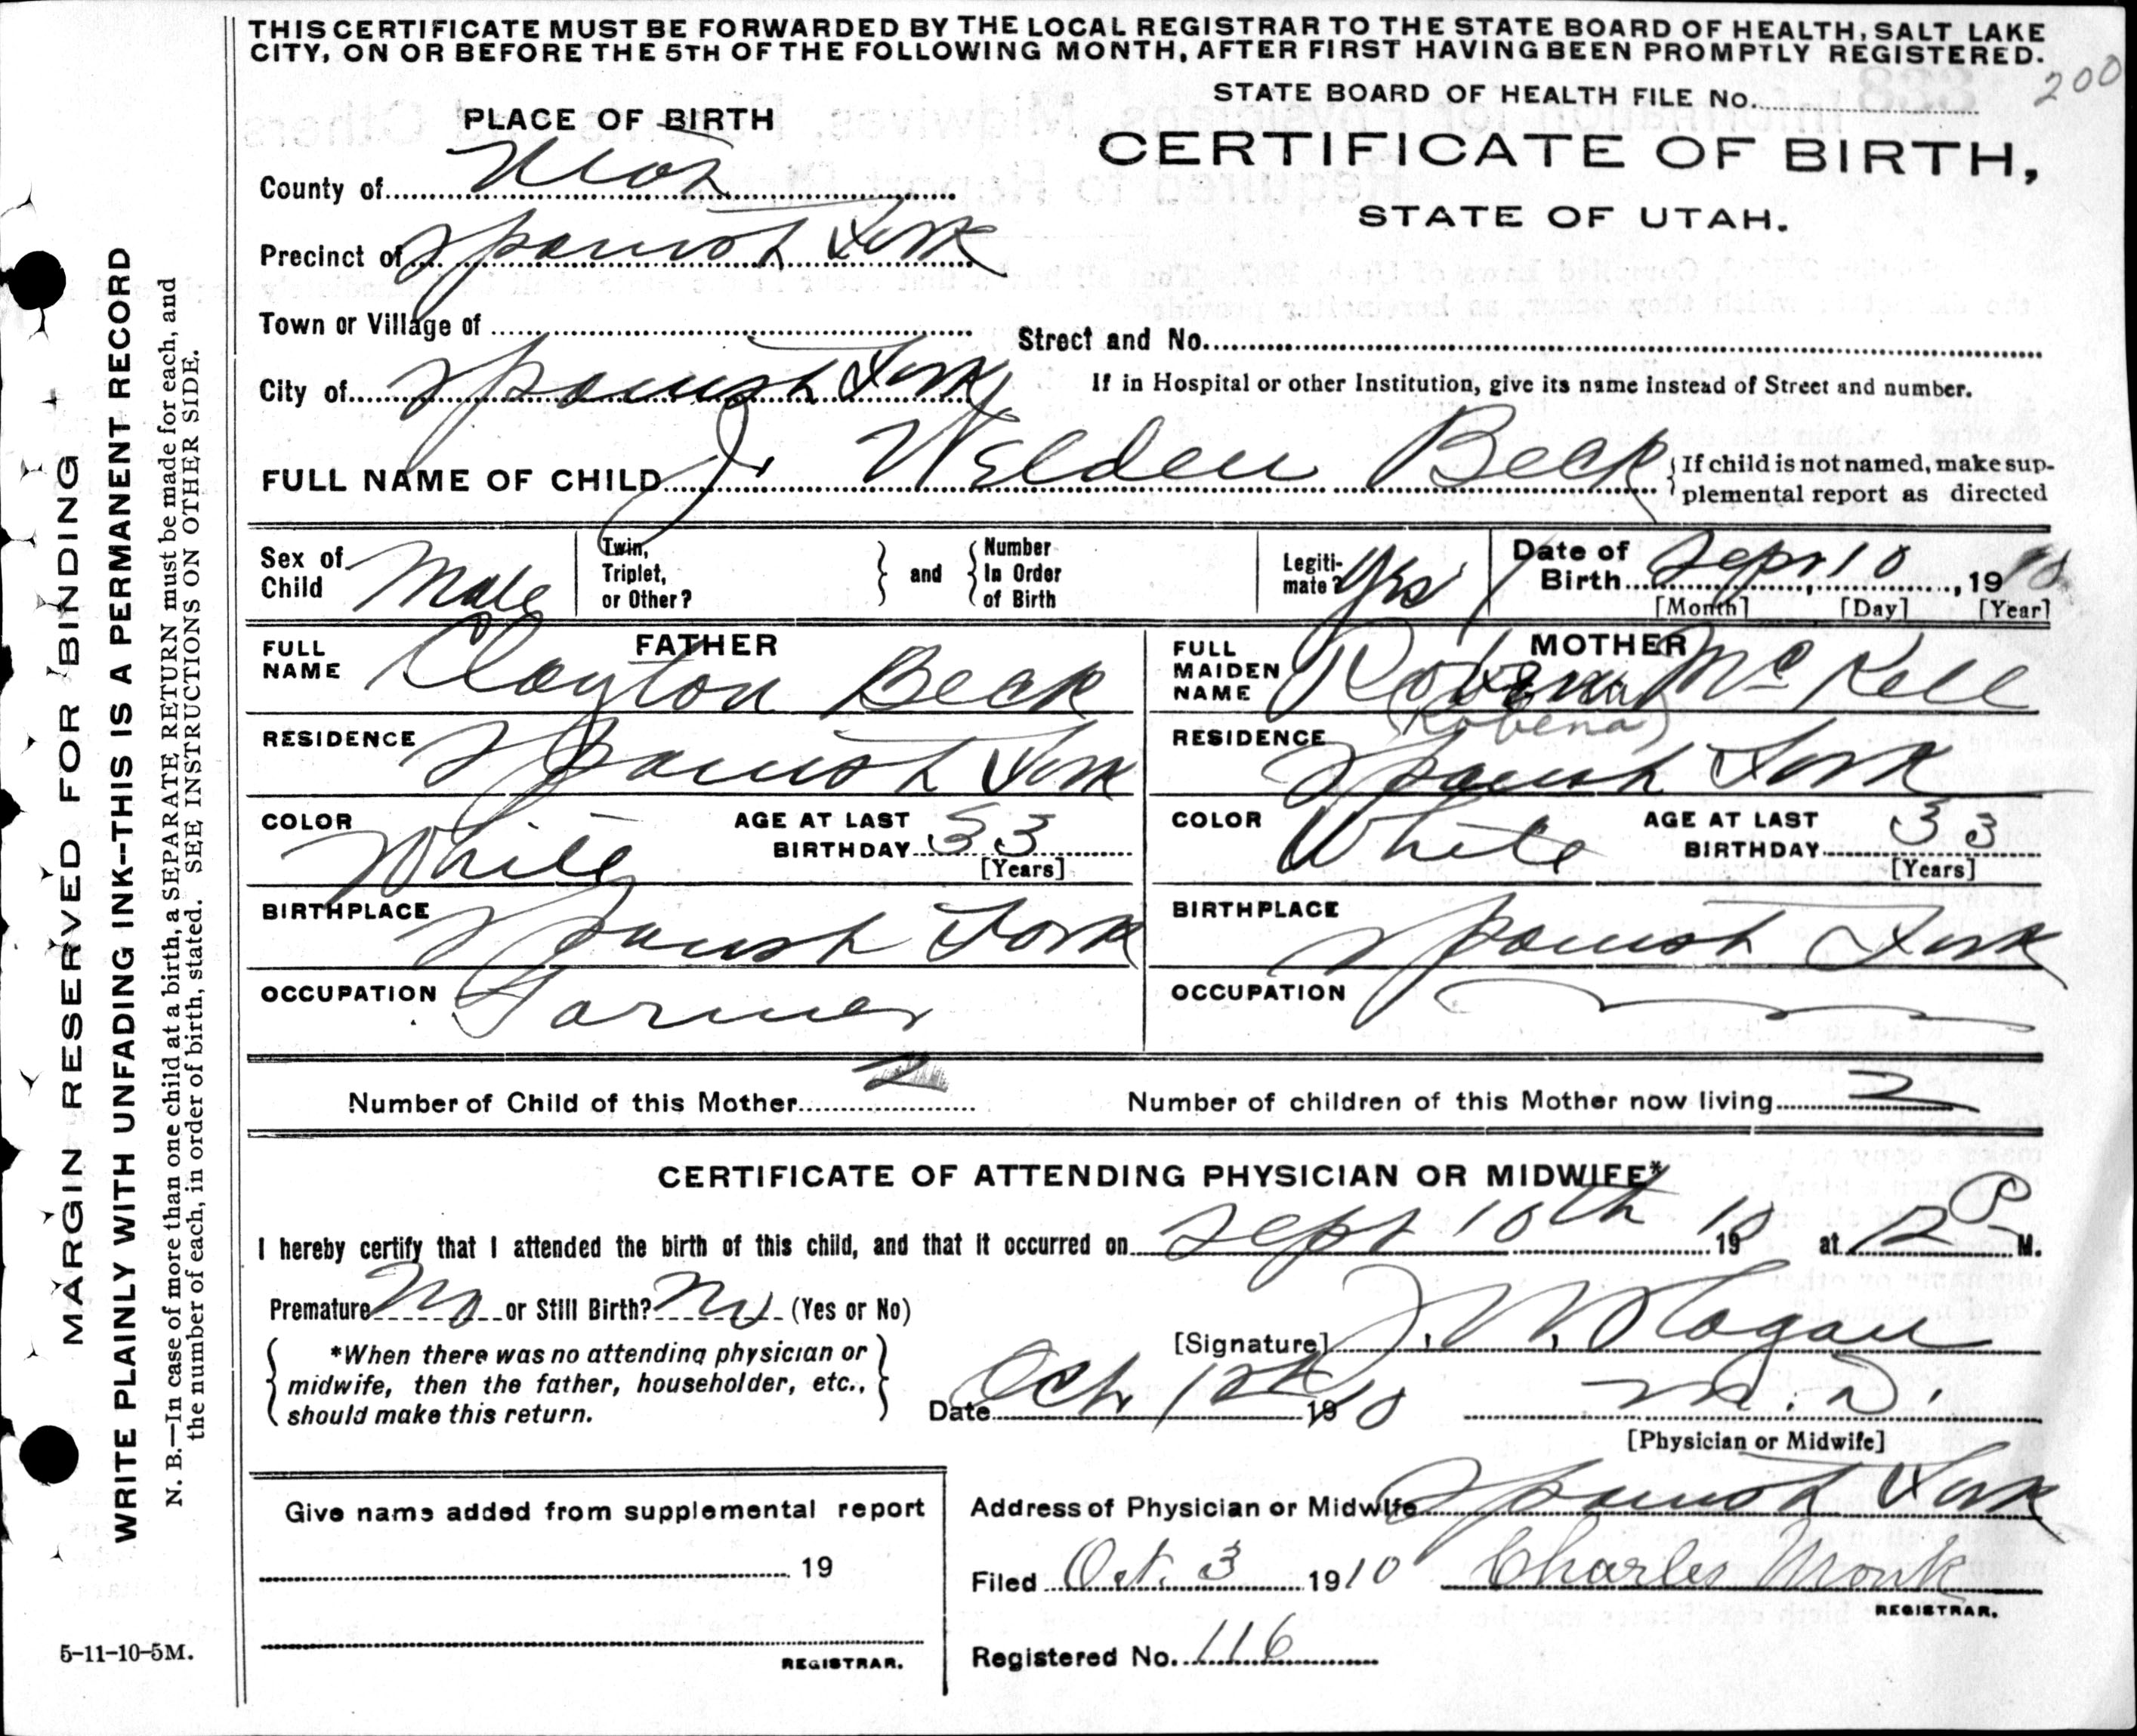 THIS CERTIFICATE MUST BE FORWARDED BY THE LOCAL REGISTRAR TO THE STATE BOARD OF HEALTH, SALT LAKE
CITY, ON OR BEFORE THE 5TH OF THE FOLLOWING MONTH, AFTER FIRST HAVING BEEN PROMPTLY REGISTERED.
200
STATE BOARD OF HEALTH FILE No.
CERTIFICATE OF BIRTH,
STATE OF UTAH.
PLACE OF BIRTH
County of Utah
Precinct of Spanish Fork
Town or Village of
Street and No.
City of Spanish Fork
If in Hospital or other Institution, give its name instead of Street and number.
FULL NAME OF CHILD J. Welden Beck
If child is not named, make sup-
plemental report as directed
Sex of Child Male
Twin, Triplet, or Other?
and
Number In Order of Birth
Legiti-mate? Yes
Date of Birth Sept 10, 1910
[Month] [Day] [Year]
FATHER
FULL NAME Clayton Beck
RESIDENCE Spanish Fork
COLOR White
AGE AT LAST BIRTHDAY 33
[Years]
BIRTHPLACE Spanish Fork
OCCUPATION Farmer
MOTHER
FULL MAIDEN NAME Robena McKell
(Robena)
RESIDENCE Spanish Fork
COLOR White
AGE AT LAST BIRTHDAY 33
[Years]
BIRTHPLACE Spanish Fork
OCCUPATION
Number of Child of this Mother 2
Number of children of this Mother now living 2
CERTIFICATE OF ATTENDING PHYSICIAN OR MIDWIFE*
I hereby certify that I attended the birth of this child, and that it occurred on Sept 10th 1910 at 12 P M.
Premature No or Still Birth? No (Yes or No)
*When there was no attending physician or
midwife, then the father, householder, etc.,
should make this return.
[Signature] J. W. Hagan
Date Oct 1st 1910
M.D.
[Physician or Midwife]
Give name added from supplemental report
19
REGISTRAR.
Address of Physician or Midwife Spanish Fork
Filed Oct. 3 1910 Charles Monk
REGISTRAR.
Registered No. 116
MARGIN RESERVED FOR BINDING
WRITE PLAINLY WITH UNFADING INK--THIS IS A PERMANENT RECORD
N. B.—In case of more than one child at a birth, a SEPARATE RETURN must be made for each, and
the number of each, in order of birth, stated. SEE INSTRUCTIONS ON OTHER SIDE.
5-11-10-5M.